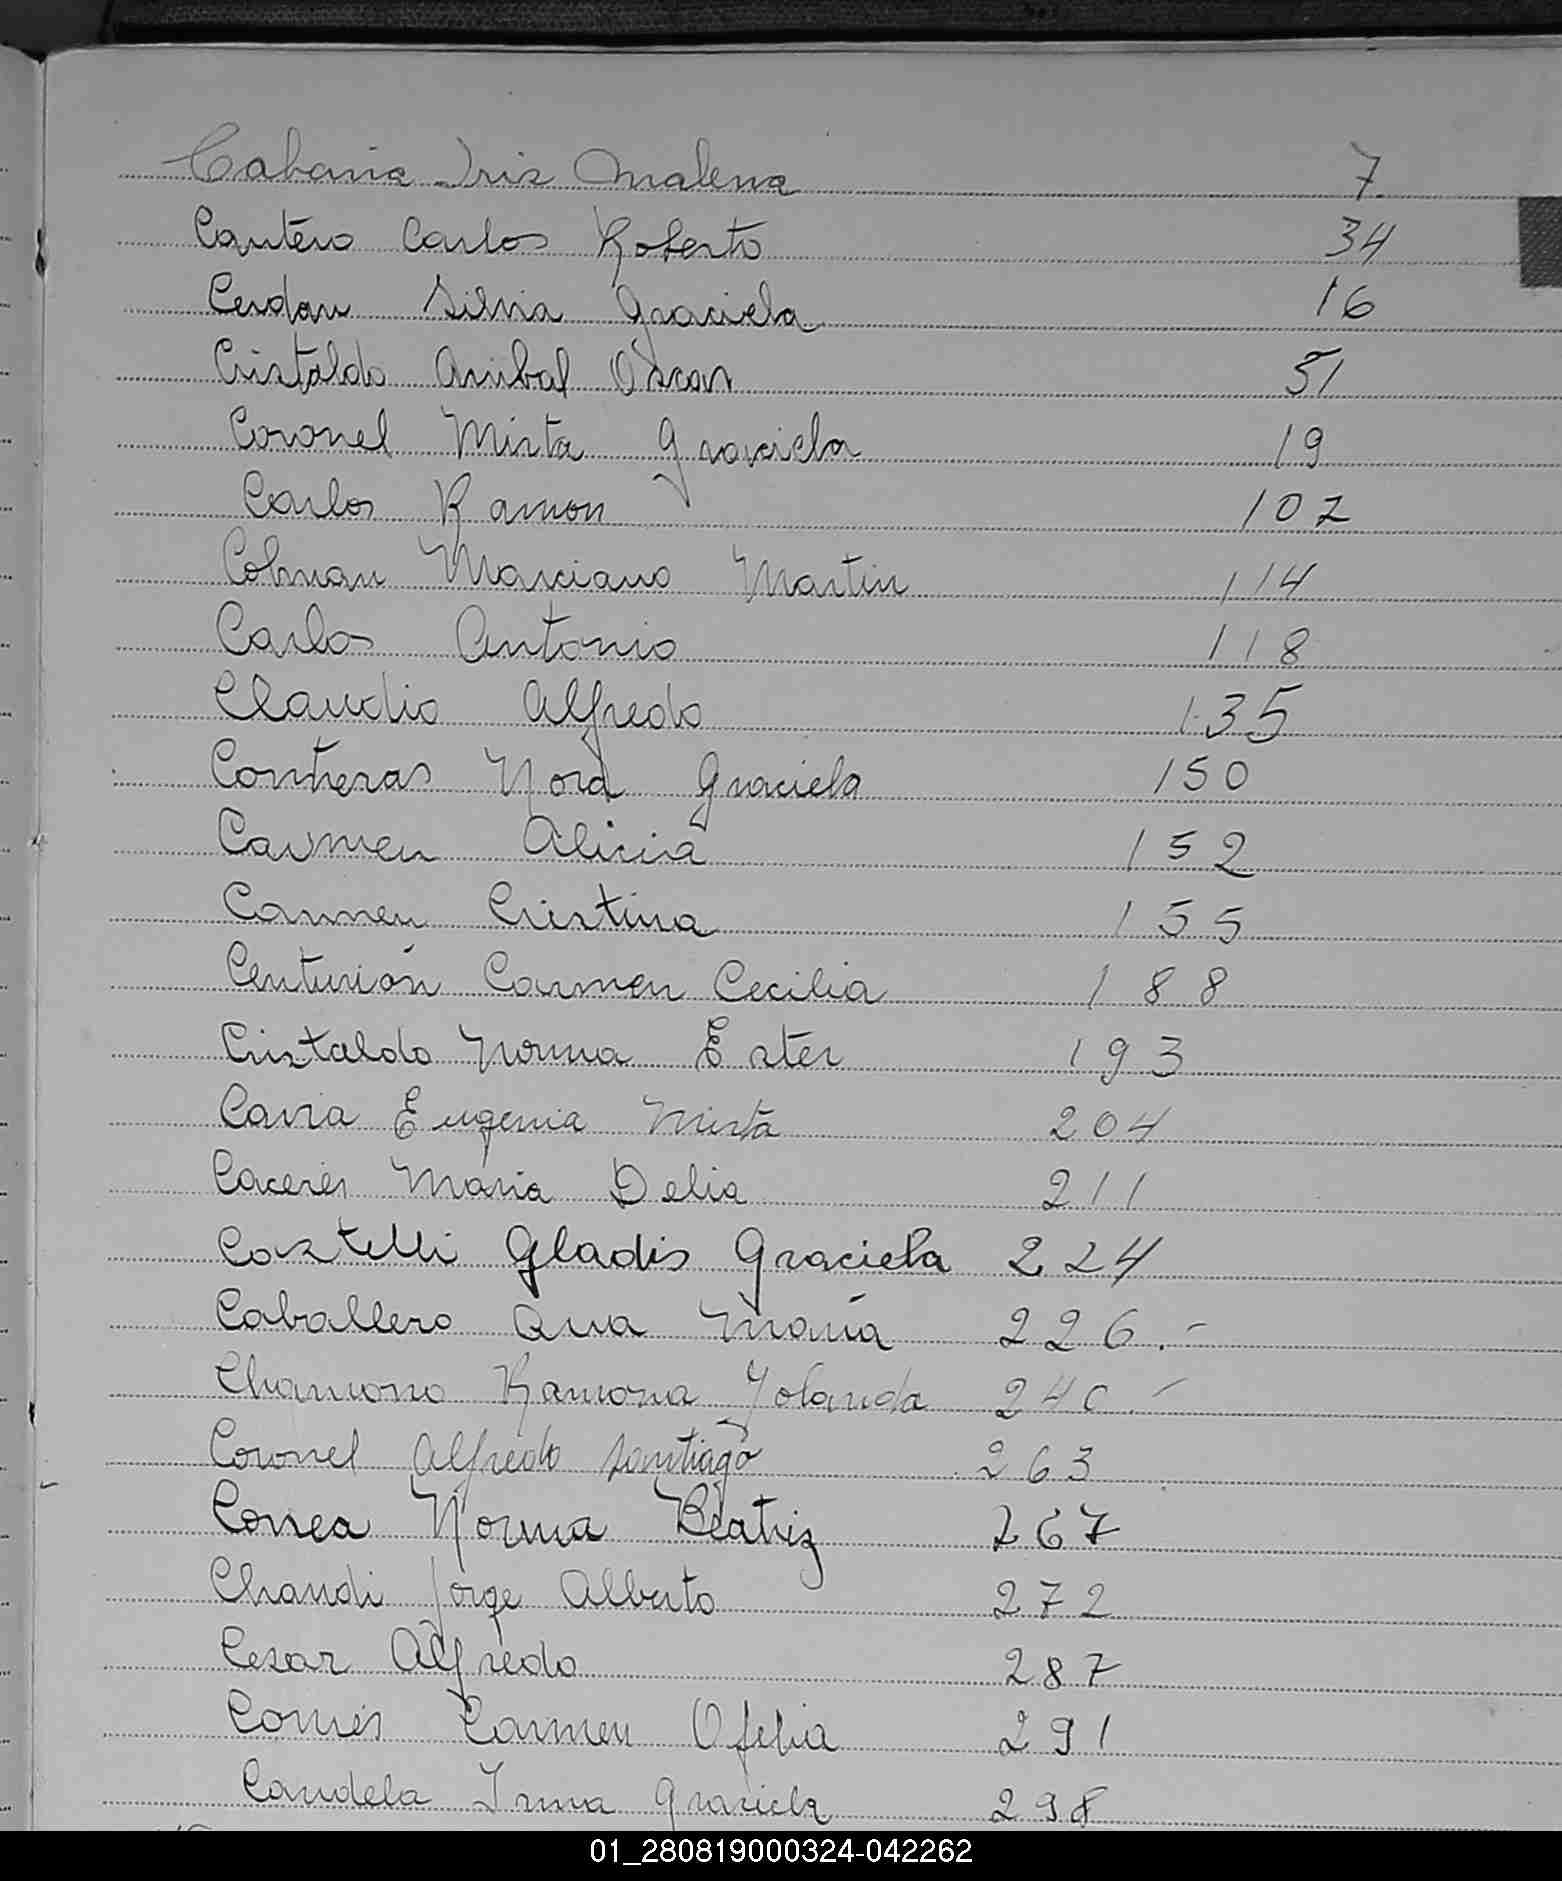 Cabaña Iris Malena 7
Cantero Carlos Roberto 34
Cerdan Silvia Graciela 16
Cristaldo Anibal Oscar 51
Coronel Mirta Graciela 19
Carlos Ramon 102
Colman Marciano Martin 114
Carlos Antonio 118
Claudio Alfredo 135
Contreras Nora Graciela 150
Carmen Alicia 152
Carmen Cristina 155
Centurión Carmen Cecilia 188
Cristaldo Norma Ester 193
Eugenia Mirta 204
Caceres Maria Delia 211
Castelli Gladis Graciela 224
Caballero Ana María 226.-
Chamorro Ramona Yolanda 240.-
Coronel Alfredo Santiago 263
Correa Norma Beatriz 267
Chaudi Jorge Alberto 272
Cesar Alfredo 287
Carmen Ofelia 291
Candela Irma Graciela 298
01_280819000324-042262